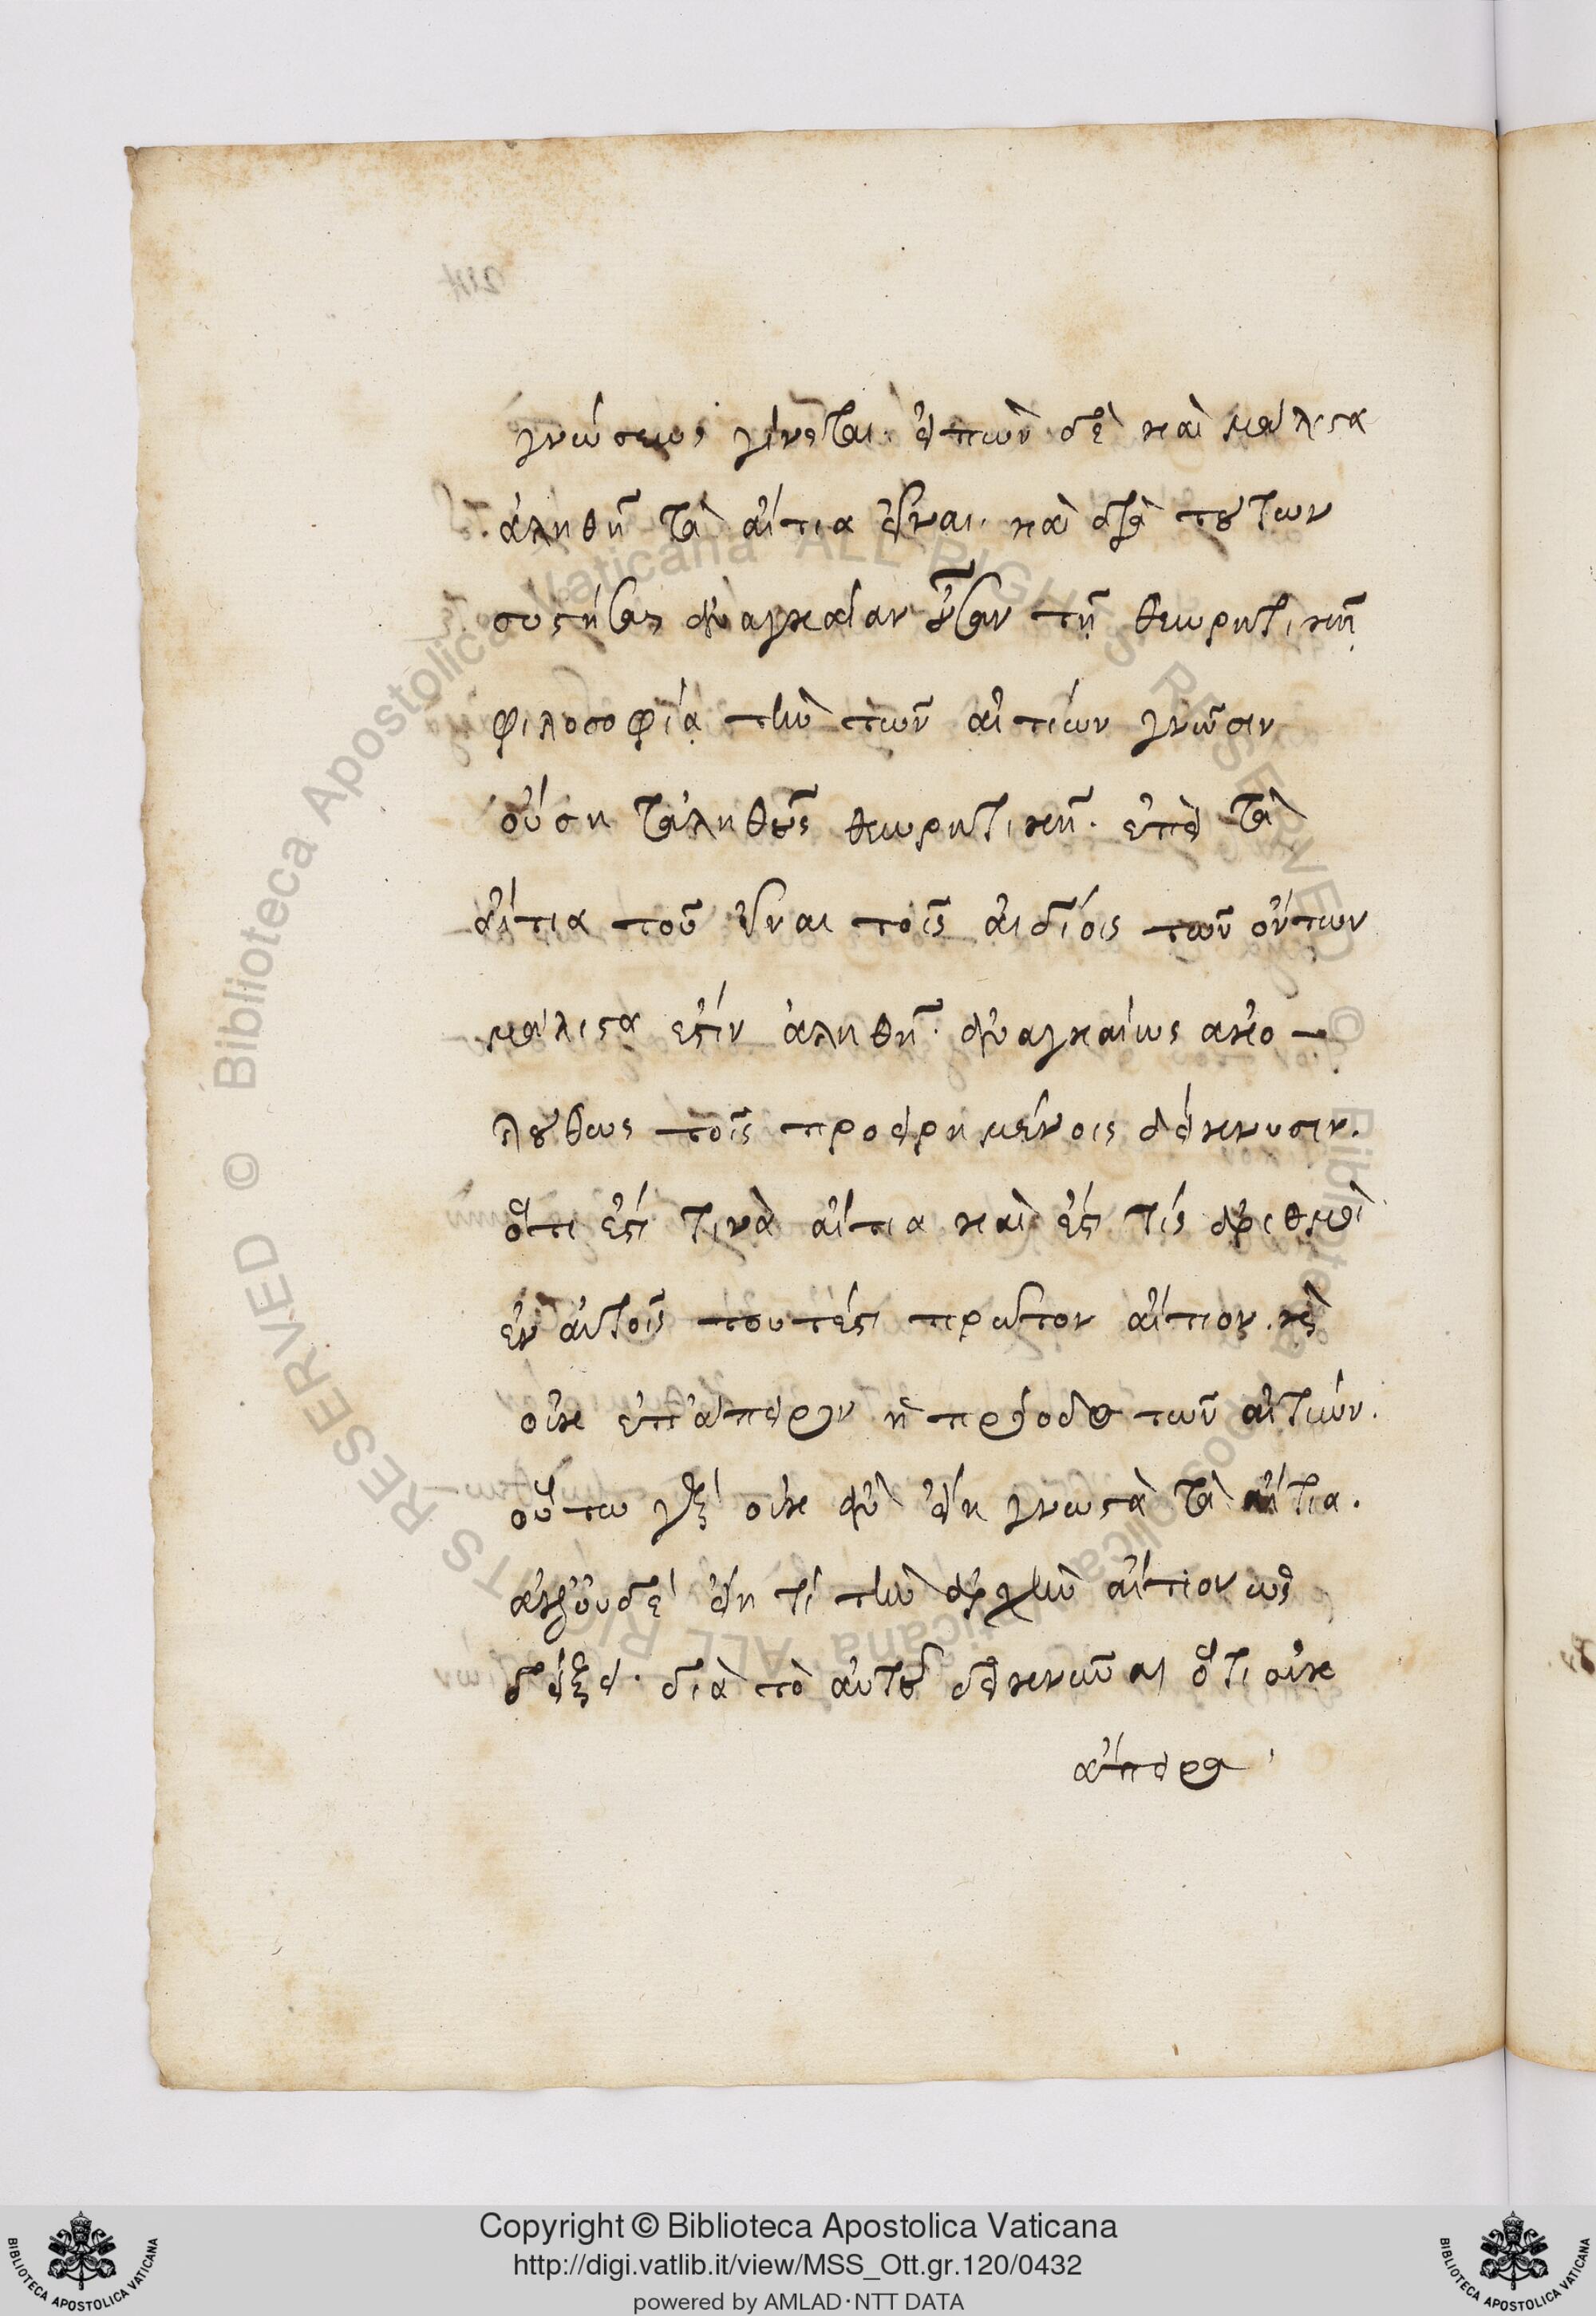 γνώσεως γίνεται. εἰπὼν δὲ καὶ μάλιστα
ἀληθῆ τὰ αἴτια εἶναι. καὶ διὰ τούτων
συστήσας ἀναγκαίαν οὖσαν τῇ θεωρητικῇ
φιλοσοφίᾳ τὴν τῶν αἰτίων γνῶσιν
οὔσῃ τἀληθοῦς θεωρητικῇ. ἐπεὶ τὰ
αἴτια τοῦ εἶναι τοῖς ἀιδίοις τῶν ὄντων
μάλιστά ἐστιν ἀληθῆ. ἀναγκαίως ἀκο–
λούθως τοῖς προειρημένοις δείκνυσιν.
ὅτι ἐστί τινα αἴτια καὶ ἔστι τίς ἀριθμὸς
ἐν αὐτοῖς τουτέστι πρῶτον αἴτιον. καὶ
οὐκ ἐπ' ἄπειρον ἡ πρόοδος τῶν αἰτιῶν.
οὕτω γὰρ οὐκ ἂν εἴη γνωστὰ τὰ αἴτια.
ἀλλ' οὐδ' εἴη τι τὴν ἀρχὴν αἴτιον ὡς
δείξει. διὰ τὸ αὐτοῦ δεικνύναι ὅτι οὐκ
ἄπειρα
Copyright © Biblioteca Apostolica Vaticana
http://digi.vatlib.it/view/MSS_Ott.gr.120/0432
powered by AMLAD·NTT DATA